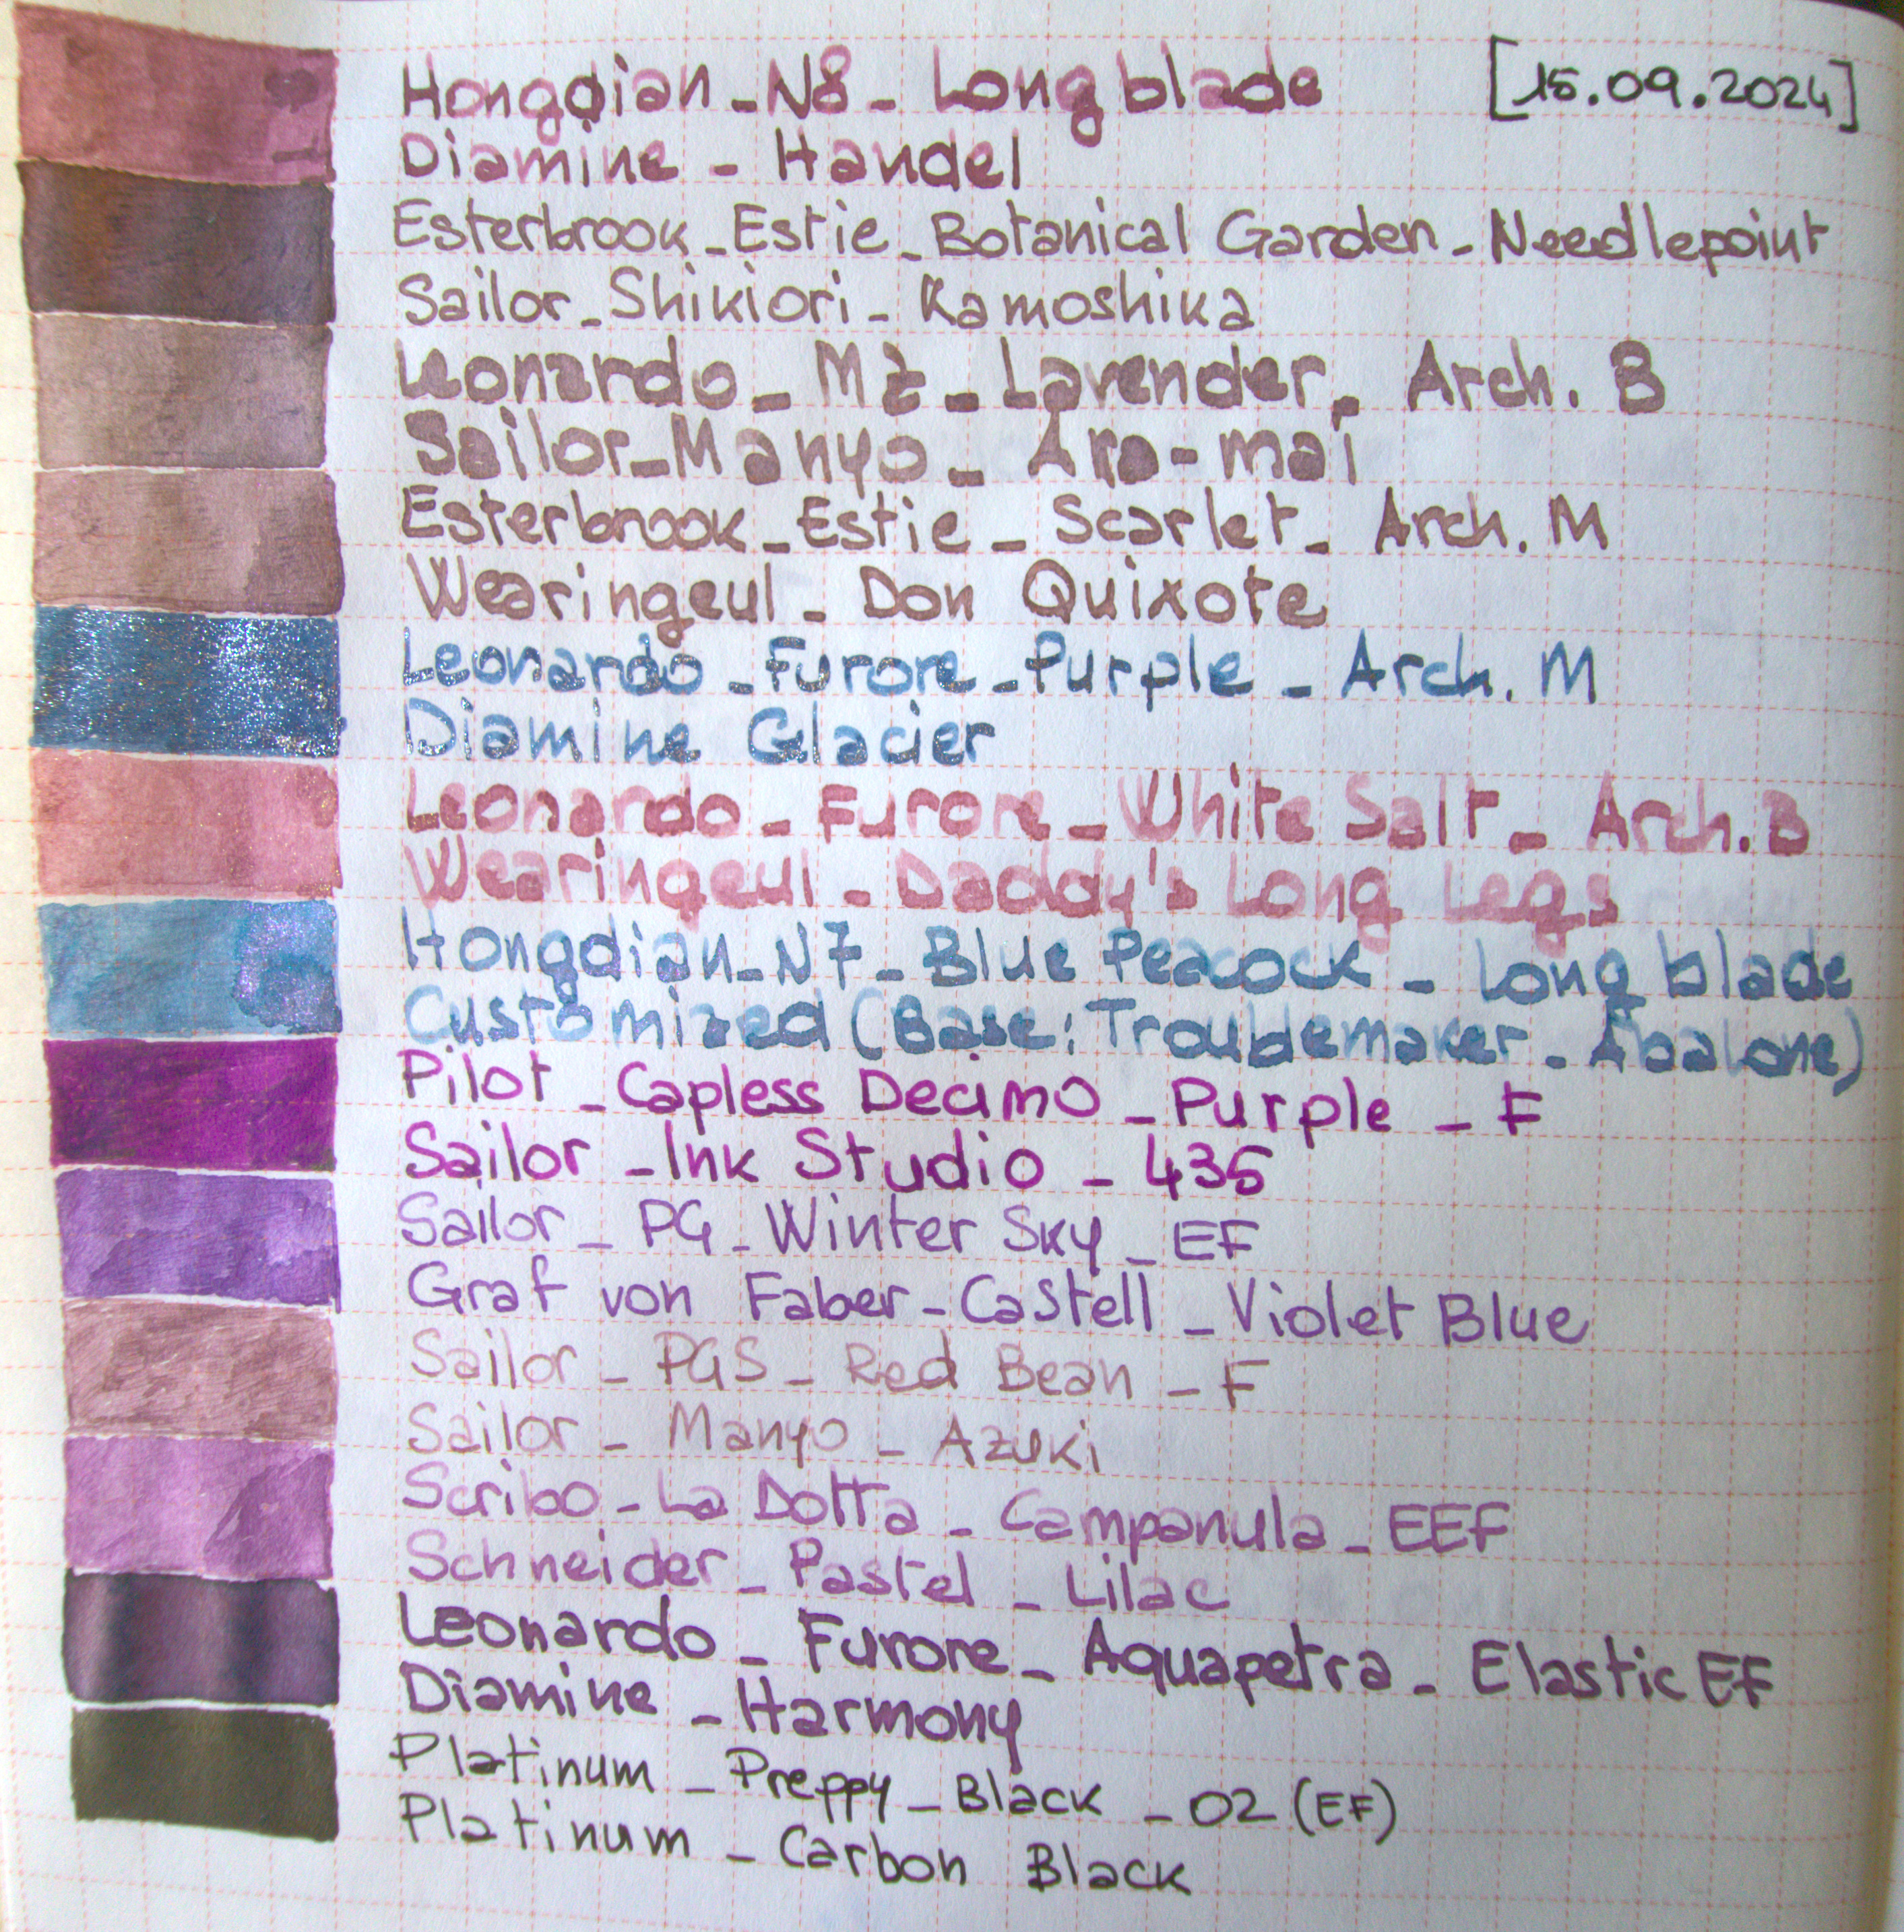 Hongdian - N8 - Long blade [15.09.2024]
Diamine - Handel
Esterbrook - Estie - Botanical Garden - Needlepoint
Sailor - Shikiori - Kamoshika
Leonardo - MZ - Lavender - Arch. B
Sailor - Manyo - Ara-mai
Esterbrook - Estie - Scarlet - Arch. M
Wearingeul - Don Quixote
Leonardo - Furore - Purple - Arch. M
Diamine Glacier
Leonardo - Furore - White Salt - Arch. B
Wearingeul - Daddy's Long Legs
Hongdian - N7 - Blue Peacock - Long blade
Customized (Base: Troublemaker - Abalone)
Pilot - Capless Decimo - Purple - F
Sailor - Ink Studio - 435
Sailor - PG - Winter Sky - EF
Graf von Faber-Castell - Violet Blue
Sailor - PGS - Red Bean - F
Sailor - Manyo - Azuki
Scribo - La Dotta - Campanula - EEF
Schneider - Pastel - Lilac
Leonardo - Furore - Aquapetra - Elastic EF
Diamine - Harmony
Platinum - Preppy - Black - 02 (EF)
Platinum - Carbon Black